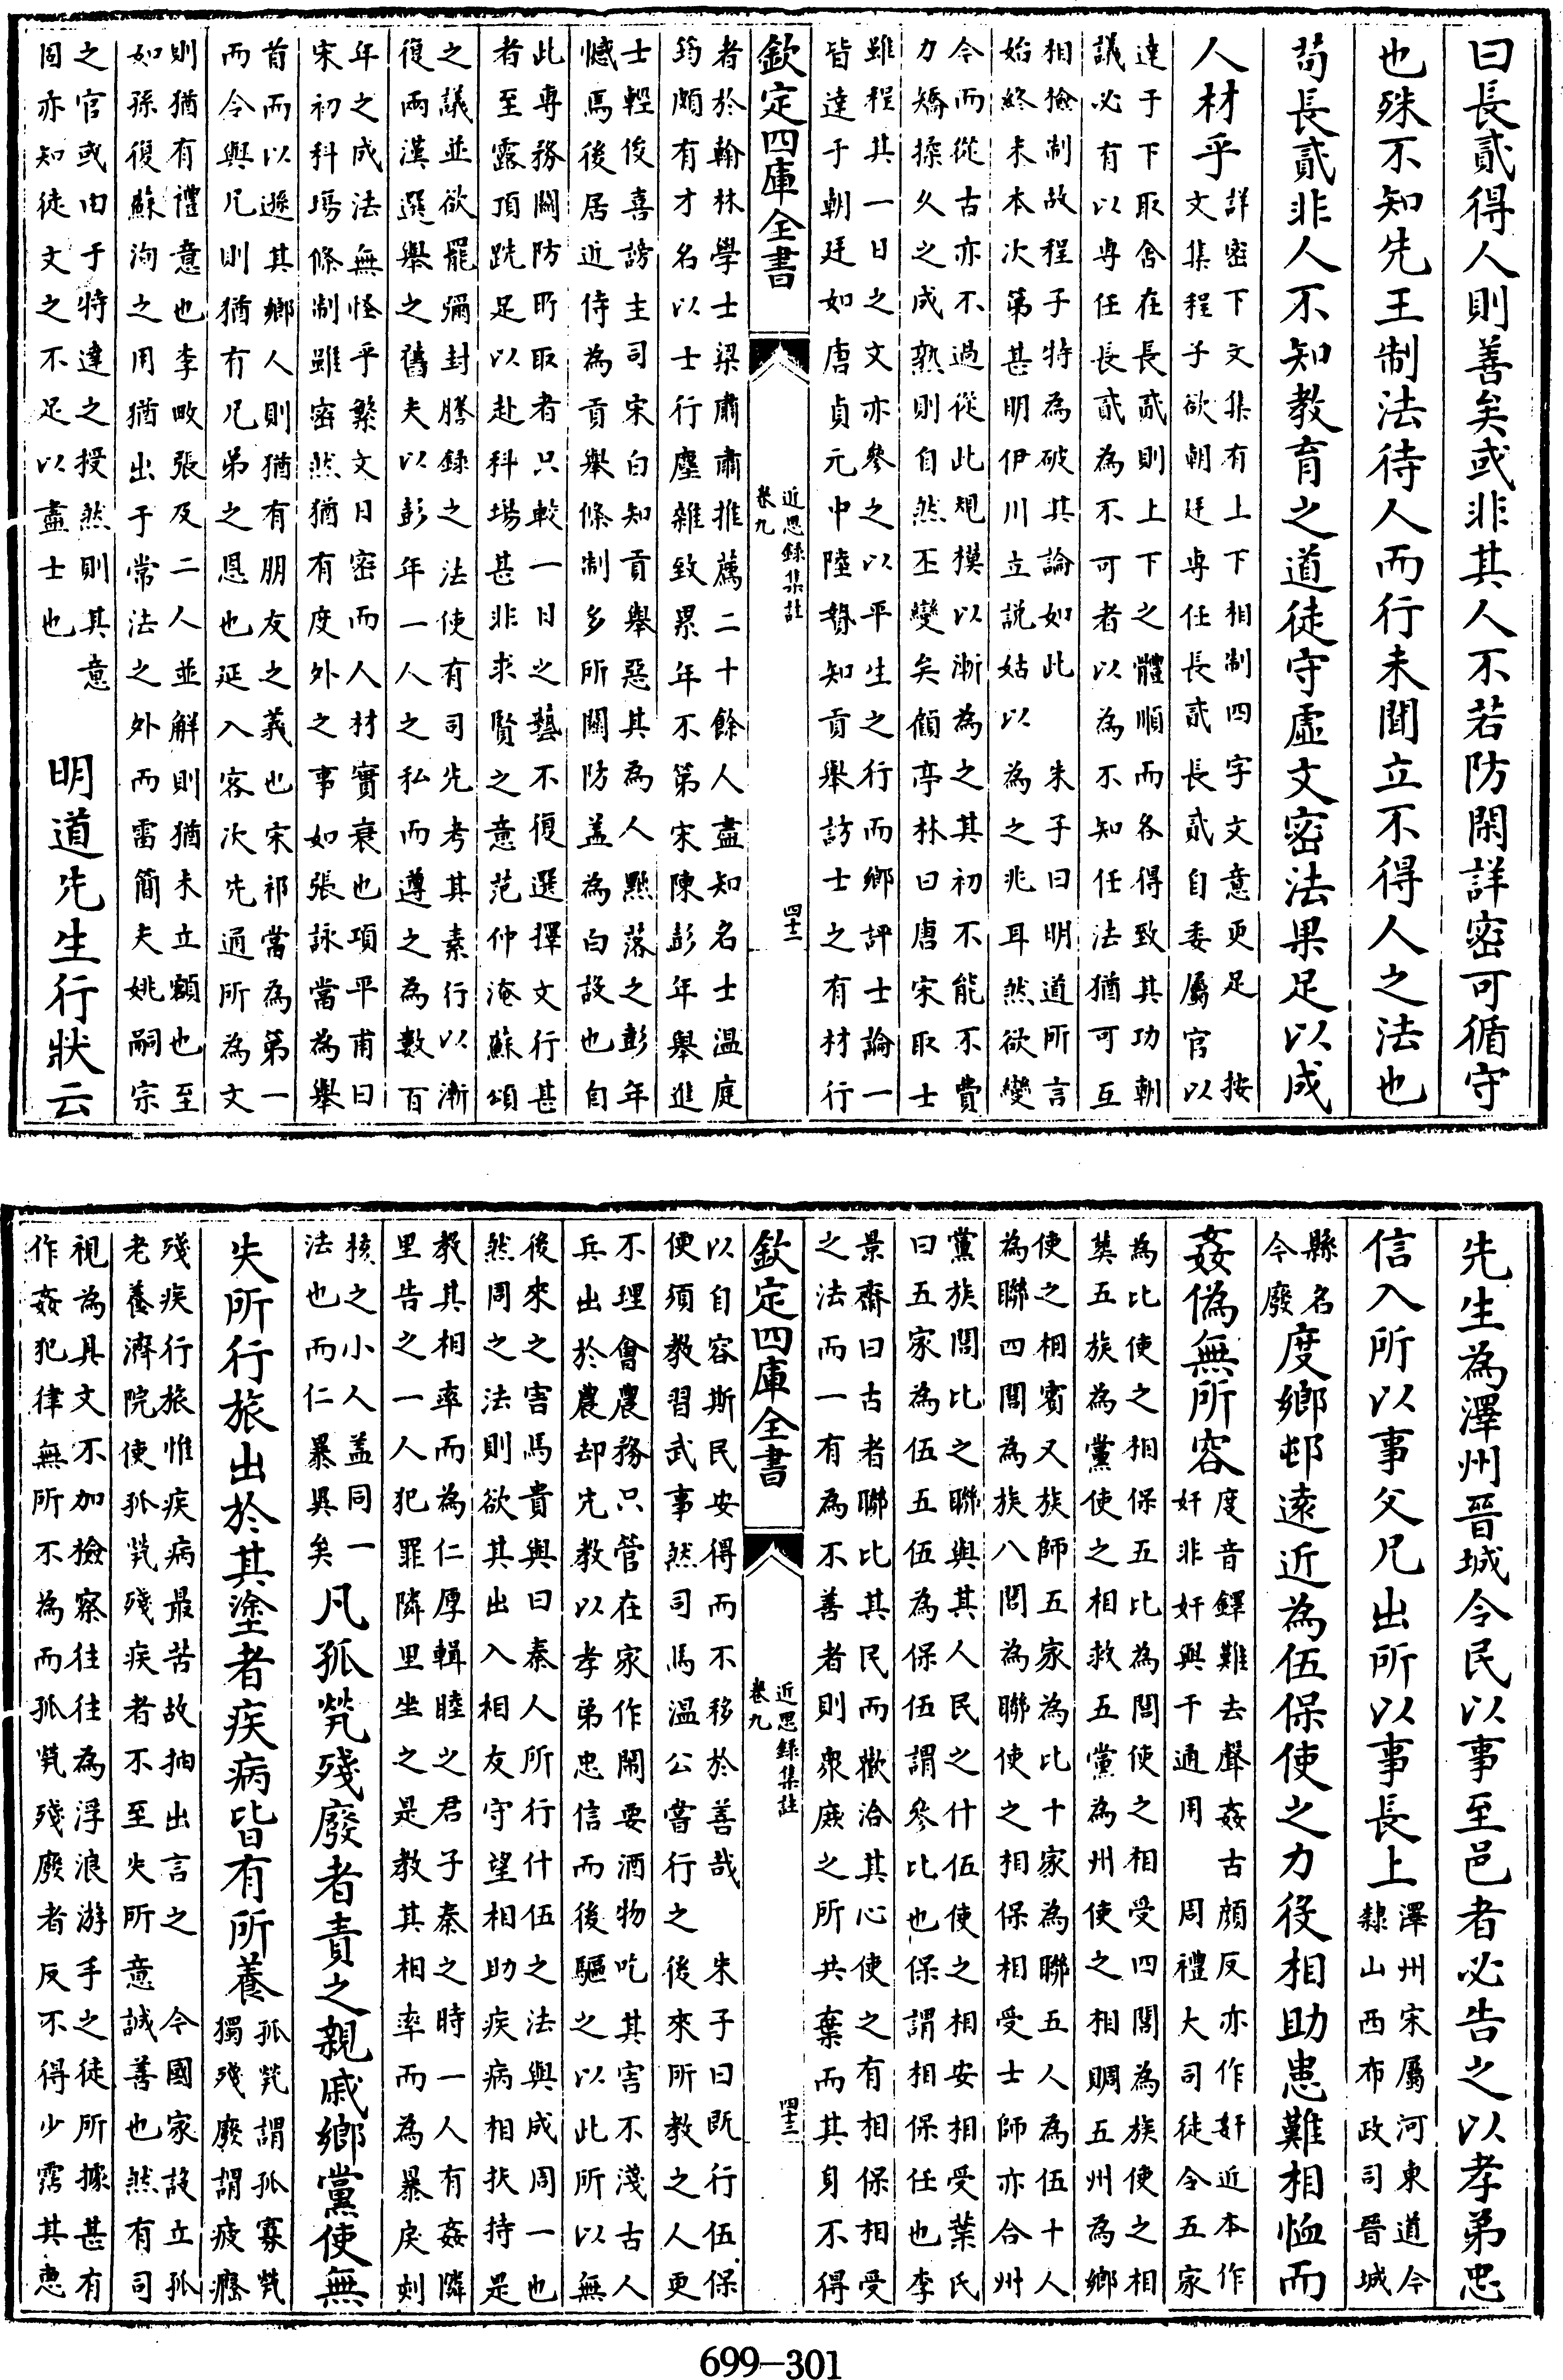 曰長貳得人則善矣或非其人不若防閑詳密可循守
也殊不知先王制法待人而行未聞立不得人之法也
苟長貳非人不知教育之道徒守虚文密法果足以成
人材乎
詳密下文集有上下相制四字文意更足　按
文集程子欲朝廷専任長貳長貳自委屬官以
達于下取舍在長貳則上下之體順而各得致其功朝
議必有以専任長貳為不可者以為不知任法猶可互
相撿制故程子特為破其論如此　朱子曰明道所言
始終本末次第甚明伊川立説姑以為之兆耳然欲變
今而從古亦不過從此規模以漸為之其初不能不費
力矯揉久之成熟則自然丕變矣顧亭林曰唐宋取士
雖程其一日之文亦參之以平生之行而鄉評士論一
皆達于朝廷如唐貞元中陸贄知貢舉訪士之有材行
欽定四庫全書
近思録集註
卷九
四十一
者於翰林學士梁肅肅推薦二十餘人盡知名士温庭
筠頗有才名以士行塵雜致累年不第宋陳彭年舉進
士輕俊喜謗主司宋白知貢舉惡其為人黜落之彭年
憾焉後居近侍為貢舉條制多所關防盖為白設也自
此専務關防所取者只較一日之藝不復選擇文行甚
者至露頂跣足以赴科場甚非求賢之意范仲淹蘇頌
之議並欲罷彌封謄録之法使有司先考其素行以漸
復兩漢選舉之舊夫以彭年一人之私而遵之為數百
年之成法無怪乎繁文日密而人材實衰也項平甫曰
宋初科塲條制雖密然猶有度外之事如張詠當為舉
首而以遜其鄉人則猶有朋友之義也宋祁當為第一
而令與兄則猶有兄弟之恩也延入客次先通所為文
則猶有禮意也李畋張及二人並解則猶未立額也至
如孫復蘇洵之用猶出于常法之外而雷簡夫姚嗣宗
之官或由于特達之授然則其意
固亦知徒文之不足以盡士也
明道先生行狀云
先生為澤州晋城令民以事至邑者必告之以孝弟忠
信入所以事父兄出所以事長上
澤州宋屬河東道今
隸山西布政司晋城
縣名
今廢
度鄉邨遠近為伍保使之力役相助患難相恤而
姦偽無所容
度音鐸難去聲姦古顔反亦作奸近本作
奸非奸與干通用　周禮大司徒令五家
為比使之相保五比為閭使之相受四閭為族使之相
𦵏五族為黨使之相救五黨為州使之相賙五州為鄉
使之相賓又族師五家為比十家為聯五人為伍十人
為聯四閭為族八閭為聯使之相保相受士師亦合州
黨族閭比之聯與其人民之什伍使之相安相受葉氏
曰五家為伍五伍為保伍謂參比也保謂相保任也李
景齋曰古者聯比其民而歡洽其心使之有相保相受
之法而一有為不善者則衆庻之所共棄而其身不得
欽定四庫全書
近思録集註
卷九
四十二
以自容斯民安得而不移於善哉　朱子曰既行伍保
便須教習武事然司馬温公嘗行之後來所教之人更
不理會農務只管在家作鬧要酒物吃其害不淺古人
兵出於農却先教以孝弟忠信而後驅之以此所以無
後來之害馬貴與曰秦人所行什伍之法與成周一也
然周之法則欲其出入相友守望相助疾病相扶持是
教其相率而為仁厚輯睦之君子秦之時一人有姦隣
里告之一人犯罪隣里坐之是教其相率而為暴戾刻
核之小人盖同一
法也而仁暴異矣
凡孤煢殘廢者責之親戚鄉黨使無
失所行旅出於其塗者疾病皆有所養
孤煢謂孤寡煢
獨殘廢謂疲癃
殘疾行旅惟疾病最苦故抽出言之　今國家設立孤
老養濟院使孤煢殘疾者不至失所意誠善也然有司
視為具文不加檢察往往為浮浪游手之徒所據甚有
作姦犯律無所不為而孤煢殘廢者反不得少霑其惠
699-301